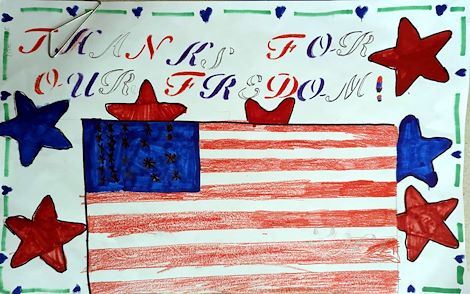 THANKS FOR
OUR FREDOM!